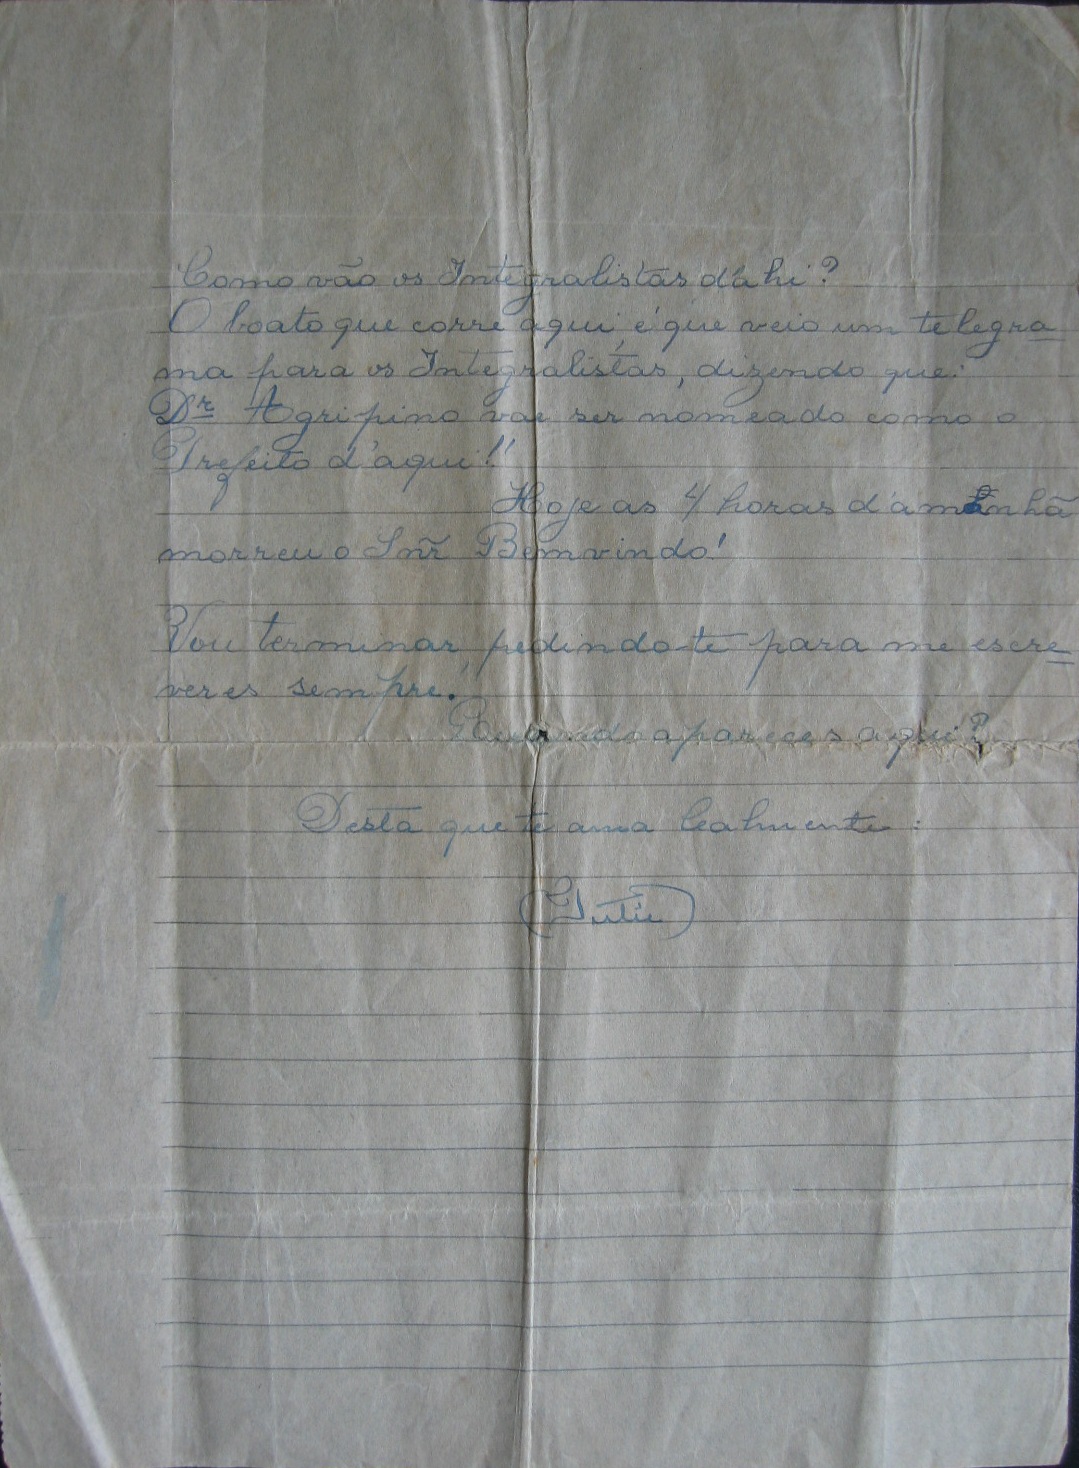 Como vão os Integralistas d'ahi?
O boato que corre aqui, é que veio um telegra
ma para os Integralistas, dizendo que:
Dr Agripino vae ser nomeado como o
Prefeito d'aqui!!
Hoje as 4 horas d'amanhã
morreu o Snr. Bemvindo!
Vou terminar, pedindo-te para me escre
veres sempre.
Quando apareces aqui?
Desta que te ama lealmente: